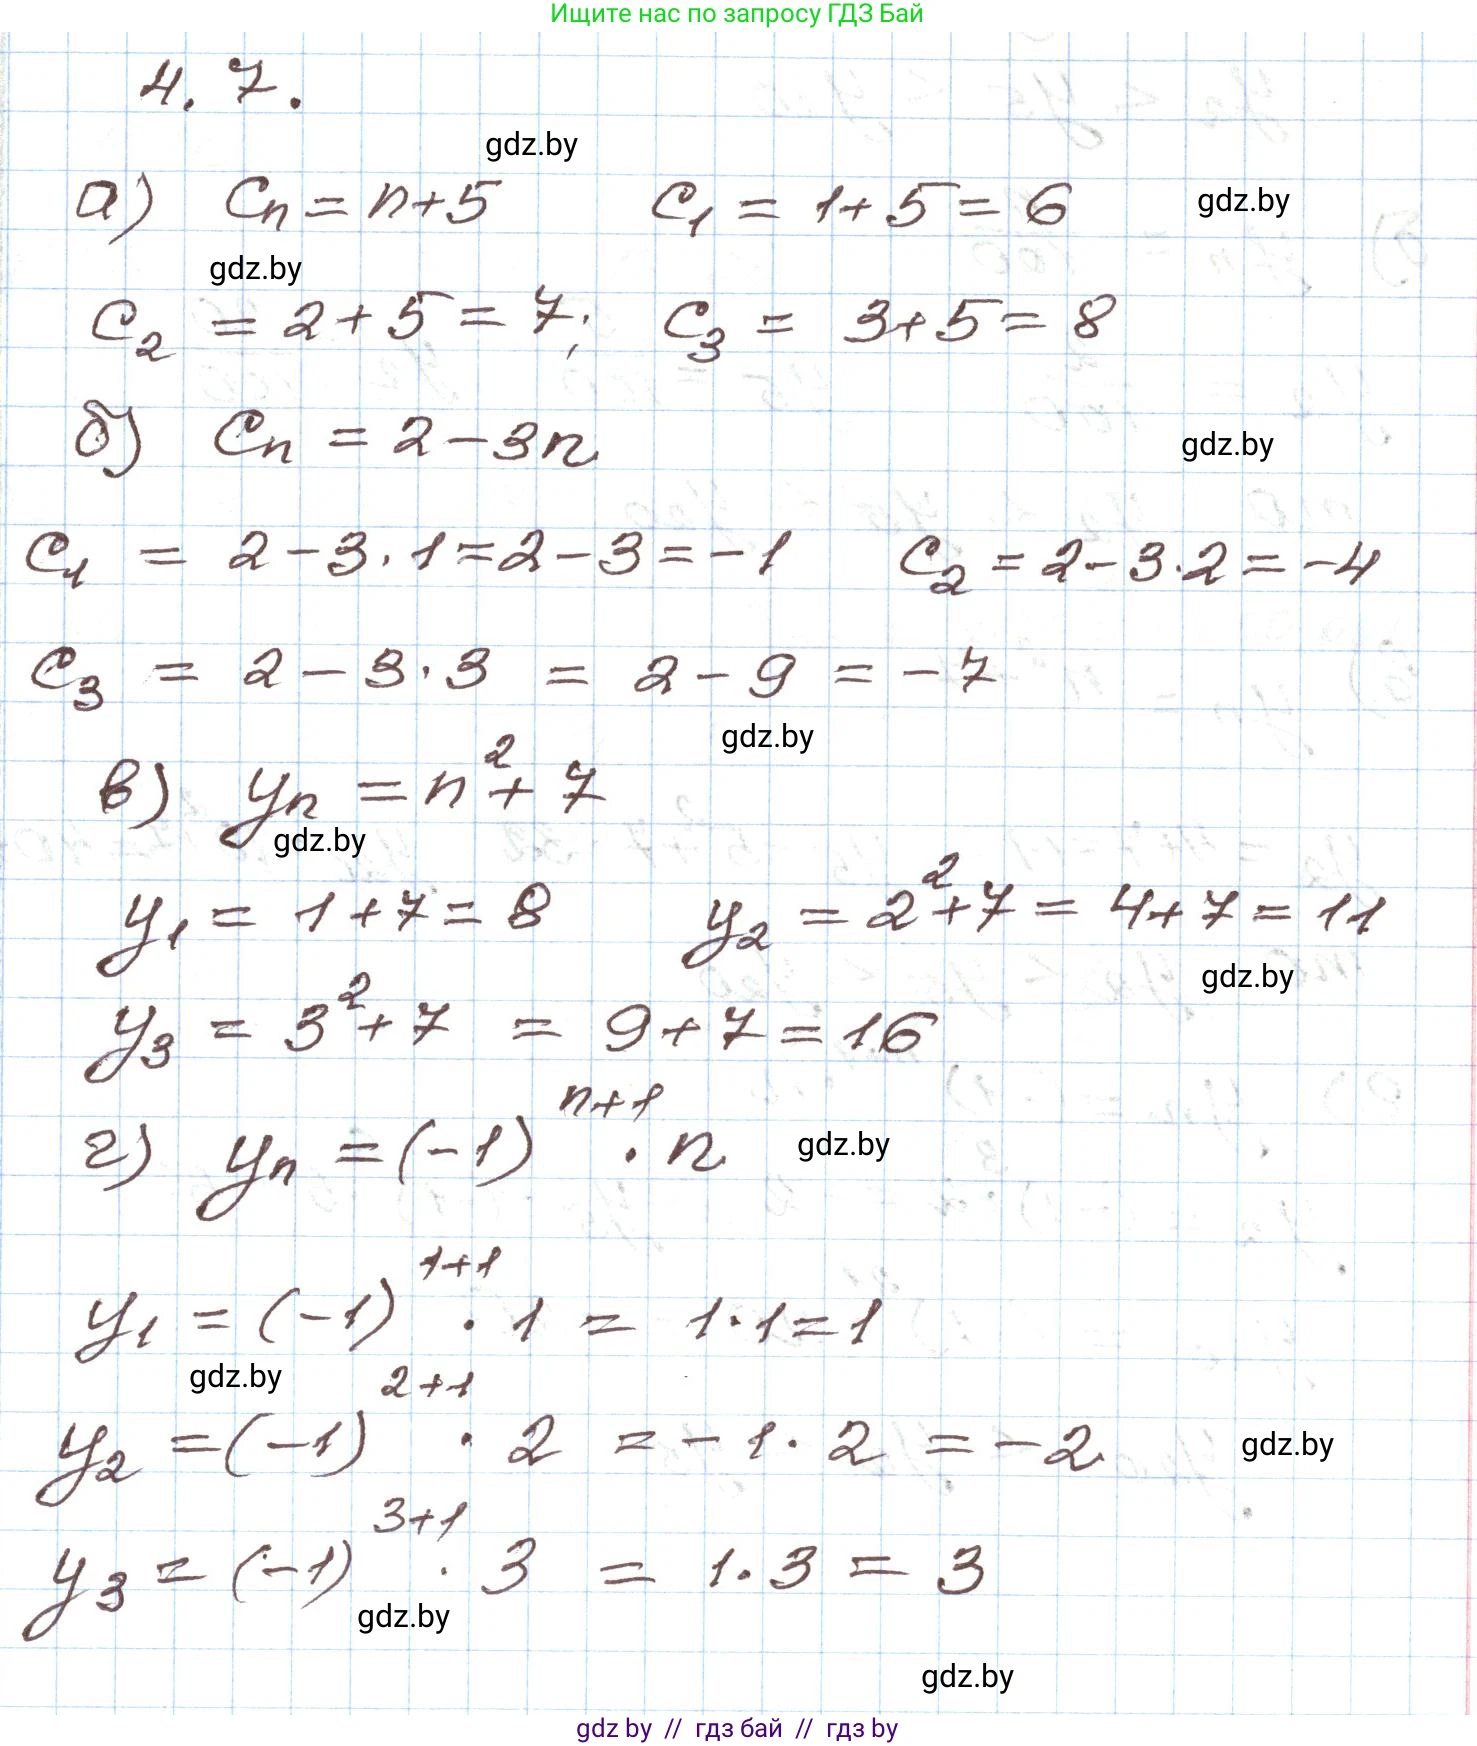 Ищите нас по запросу ГДЗ Бай
4.7.
gdz.by
а) Cₙ = n+5   C₁ = 1+5 = 6   gdz.by
gdz.by
C₂ = 2+5 = 7;   C₃ = 3+5 = 8
б) Cₙ = 2-3n   gdz.by
C₁ = 2-3·1 = 2-3 = -1   C₂ = 2-3·2 = -4
C₃ = 2-3·3 = 2-9 = -7
gdz.by
в) yₙ = n²+7
gdz.by
y₁ = 1+7 = 8   y₂ = 2²+7 = 4+7 = 11
gdz.by
y₃ = 3²+7 = 9+7 = 16
г) yₙ = (-1)ⁿ⁺¹ · n   gdz.by
y₁ = (-1)¹⁺¹ · 1 = 1·1 = 1
gdz.by
y₂ = (-1)²⁺¹ · 2 = -1·2 = -2   gdz.by
y₃ = (-1)³⁺¹ · 3 = 1·3 = 3
gdz.by
gdz.by
gdz by // гдз бай // гдз by